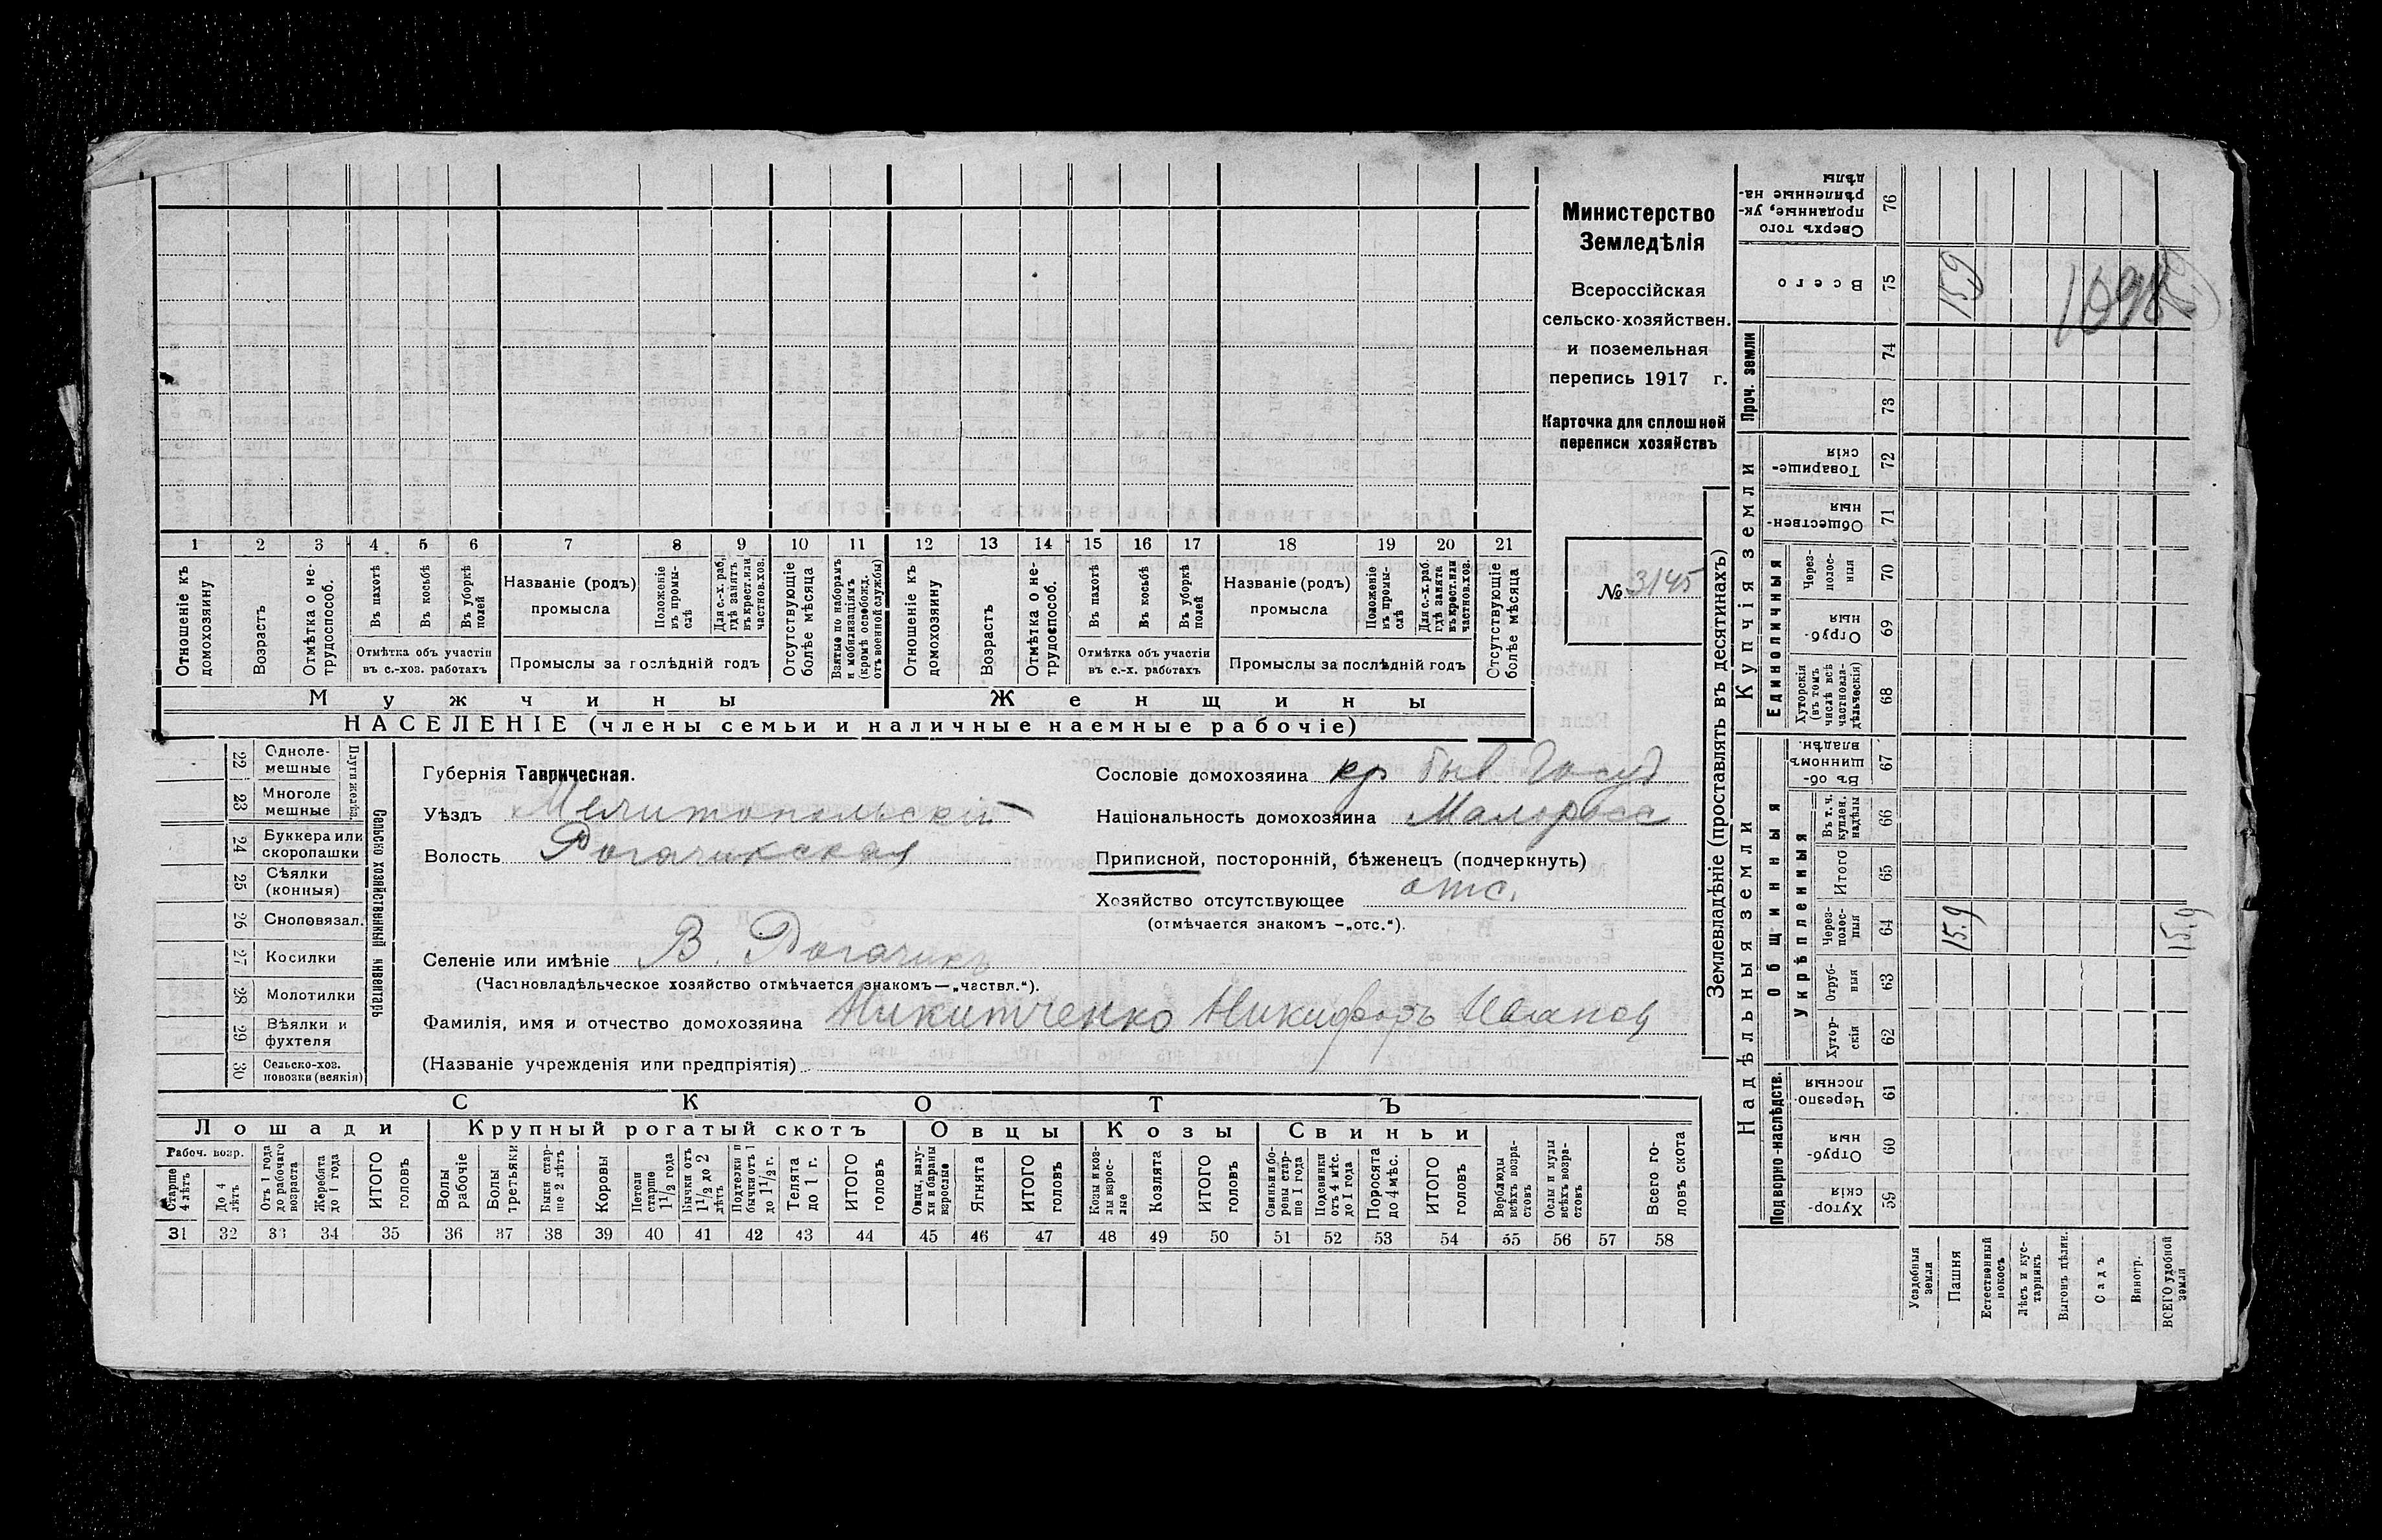 Министерство
Земледѣлія
Всероссійская
сельско-хозяйствен.
и поземельная
перепись 1917 г.
Карточка для сплошной
переписи хозяйствъ
№ 3145
1 2 3 4 5 6 7 8 9 10 11 12 13 14 15 16 17 18 19 20 21
Отношеніе къ домохозяину
Возрастъ
Отмѣтка о не-трудоспособ.
Въ пахотѣ
Въ косьбѣ
Въ уборкѣ полей
Отмѣтка объ участіи
въ с.-хоз. работахъ
Названіе (родъ)
промысла
Положеніе въ промы-слѣ
Для с.-х. раб., гдѣ занятъ въ крест. или частнов. хоз.
Промыслы за послѣдній годъ
Отсутствующіе болѣе мѣсяца
Взятые по наборамъ и мобилизаціямъ (кромѣ освобожд. отъ военной службы)
Отношеніе къ домохозяину
Возрастъ
Отмѣтка о не-трудоспособ.
Въ пахотѣ
Въ косьбѣ
Въ уборкѣ полей
Отмѣтка объ участіи
въ с.-х. работахъ
Названіе (родъ)
промысла
Положеніе въ промы-слѣ
Для с.-х. раб. гдѣ занята въ крест. или частнов. хоз.
Промыслы за послѣдній годъ
Отсутствующіе болѣе мѣсяца
Мужчины
Женщины
НАСЕЛЕНІЕ (члены семьи и наличные наемные рабочіе)
22 Одноле-мешные
23 Многоле мешные
24 Буккера или скоропашки
25 Сѣялки (конныя)
26 Сноповязал.
27 Косилки
28 Молотилки
29 Вѣялки и фухтеля
30 Сельско-хоз. повозки (всякія)
Сельско хозяйственный инвентарь
Губернія Таврическая.
Уѣздъ Мелитопольскій
Волость Рогачикская
Селеніе или имѣніе В. Рогачикъ
(Частновладѣльческое хозяйство отмѣчается знакомъ—„частвл.“).
Фамилія, имя и отчество домохозяина Никитченко Никифоръ Иванов
(Названіе учрежденія или предпріятія)
Сословіе домохозяина кр быв Госуд
Національность домохозяина Малоросс
Приписной, посторонній, бѣженецъ (подчеркнуть)
Хозяйство отсутствующее отс.
(отмѣчается знакомъ —„отс.“).
СКОТЪ
Лошади
Крупный рогатый скотъ
Овцы
Козы
Свиньи
Рабоч. возр.
Старше 4 лѣтъ
До 4 лѣтъ
Отъ 1 года до рабочаго возраста
Жеребята до 1 года
ИТОГО головъ
Волы рабочіе
Волы третьяки
Быки стар-ше 2 лѣтъ
Коровы
Нетели старше 1 1/2 года
Бычки отъ 1 1/2 до 2 лѣтъ
Подтелки и бычки отъ 1 до 1 1/2 г.
Телята до 1 г.
ИТОГО головъ
Овцы, валу-хи и бараны взрослые
Ягнята
ИТОГО головъ
Козы и коз-лы взрос-лые
Козлята
ИТОГО головъ
Свиньи и бо-ровы стар-ше 1 года
Подсвинки отъ 4 мѣс. до 1 года
Поросята до 4 мѣс.
ИТОГО головъ
Верблюды всѣхъ возра-стовъ
Ослы и мулы всѣхъ возра-стовъ
Всего го-ловъ скота
31 32 33 34 35 36 37 38 39 40 41 42 43 44 45 46 47 48 49 50 51 52 53 54 55 56 57 58
Землевладѣніе (проставлять въ десятинахъ)
Надѣльныя земли
Купчія земли
Проч. земли
Подворно-наслѣдств.
Общинныя
Укрѣпленныя
Единоличныя
Хутор-скія 59
Отруб-ныя 60
Черезпо-лосныя 61
Хутор-скія 62
Отруб-ныя 63
Черезполос-ныя 64
Итого 65
Въ т. ч. куплен. надѣлы 66
Въ об-щинномъ владѣн. 67
Хуторскія (въ томъ числѣ всѣ частновла-дѣльческія) 68
Отруб-ныя 69
Через-полос-ныя 70
Обществен-ныя 71
Товарище-скія 72
73
74
Всего 75
Сверхъ того проданные, ук-рѣпленные на-дѣлы 76
15,9
15,9
15,9
Усадебныя земли
Пашня
Естественный покосъ
Лѣсъ и кус-тарникъ
Выгонъ цѣлин.
Садъ
Виногр.
ВСЕГО удобной земли